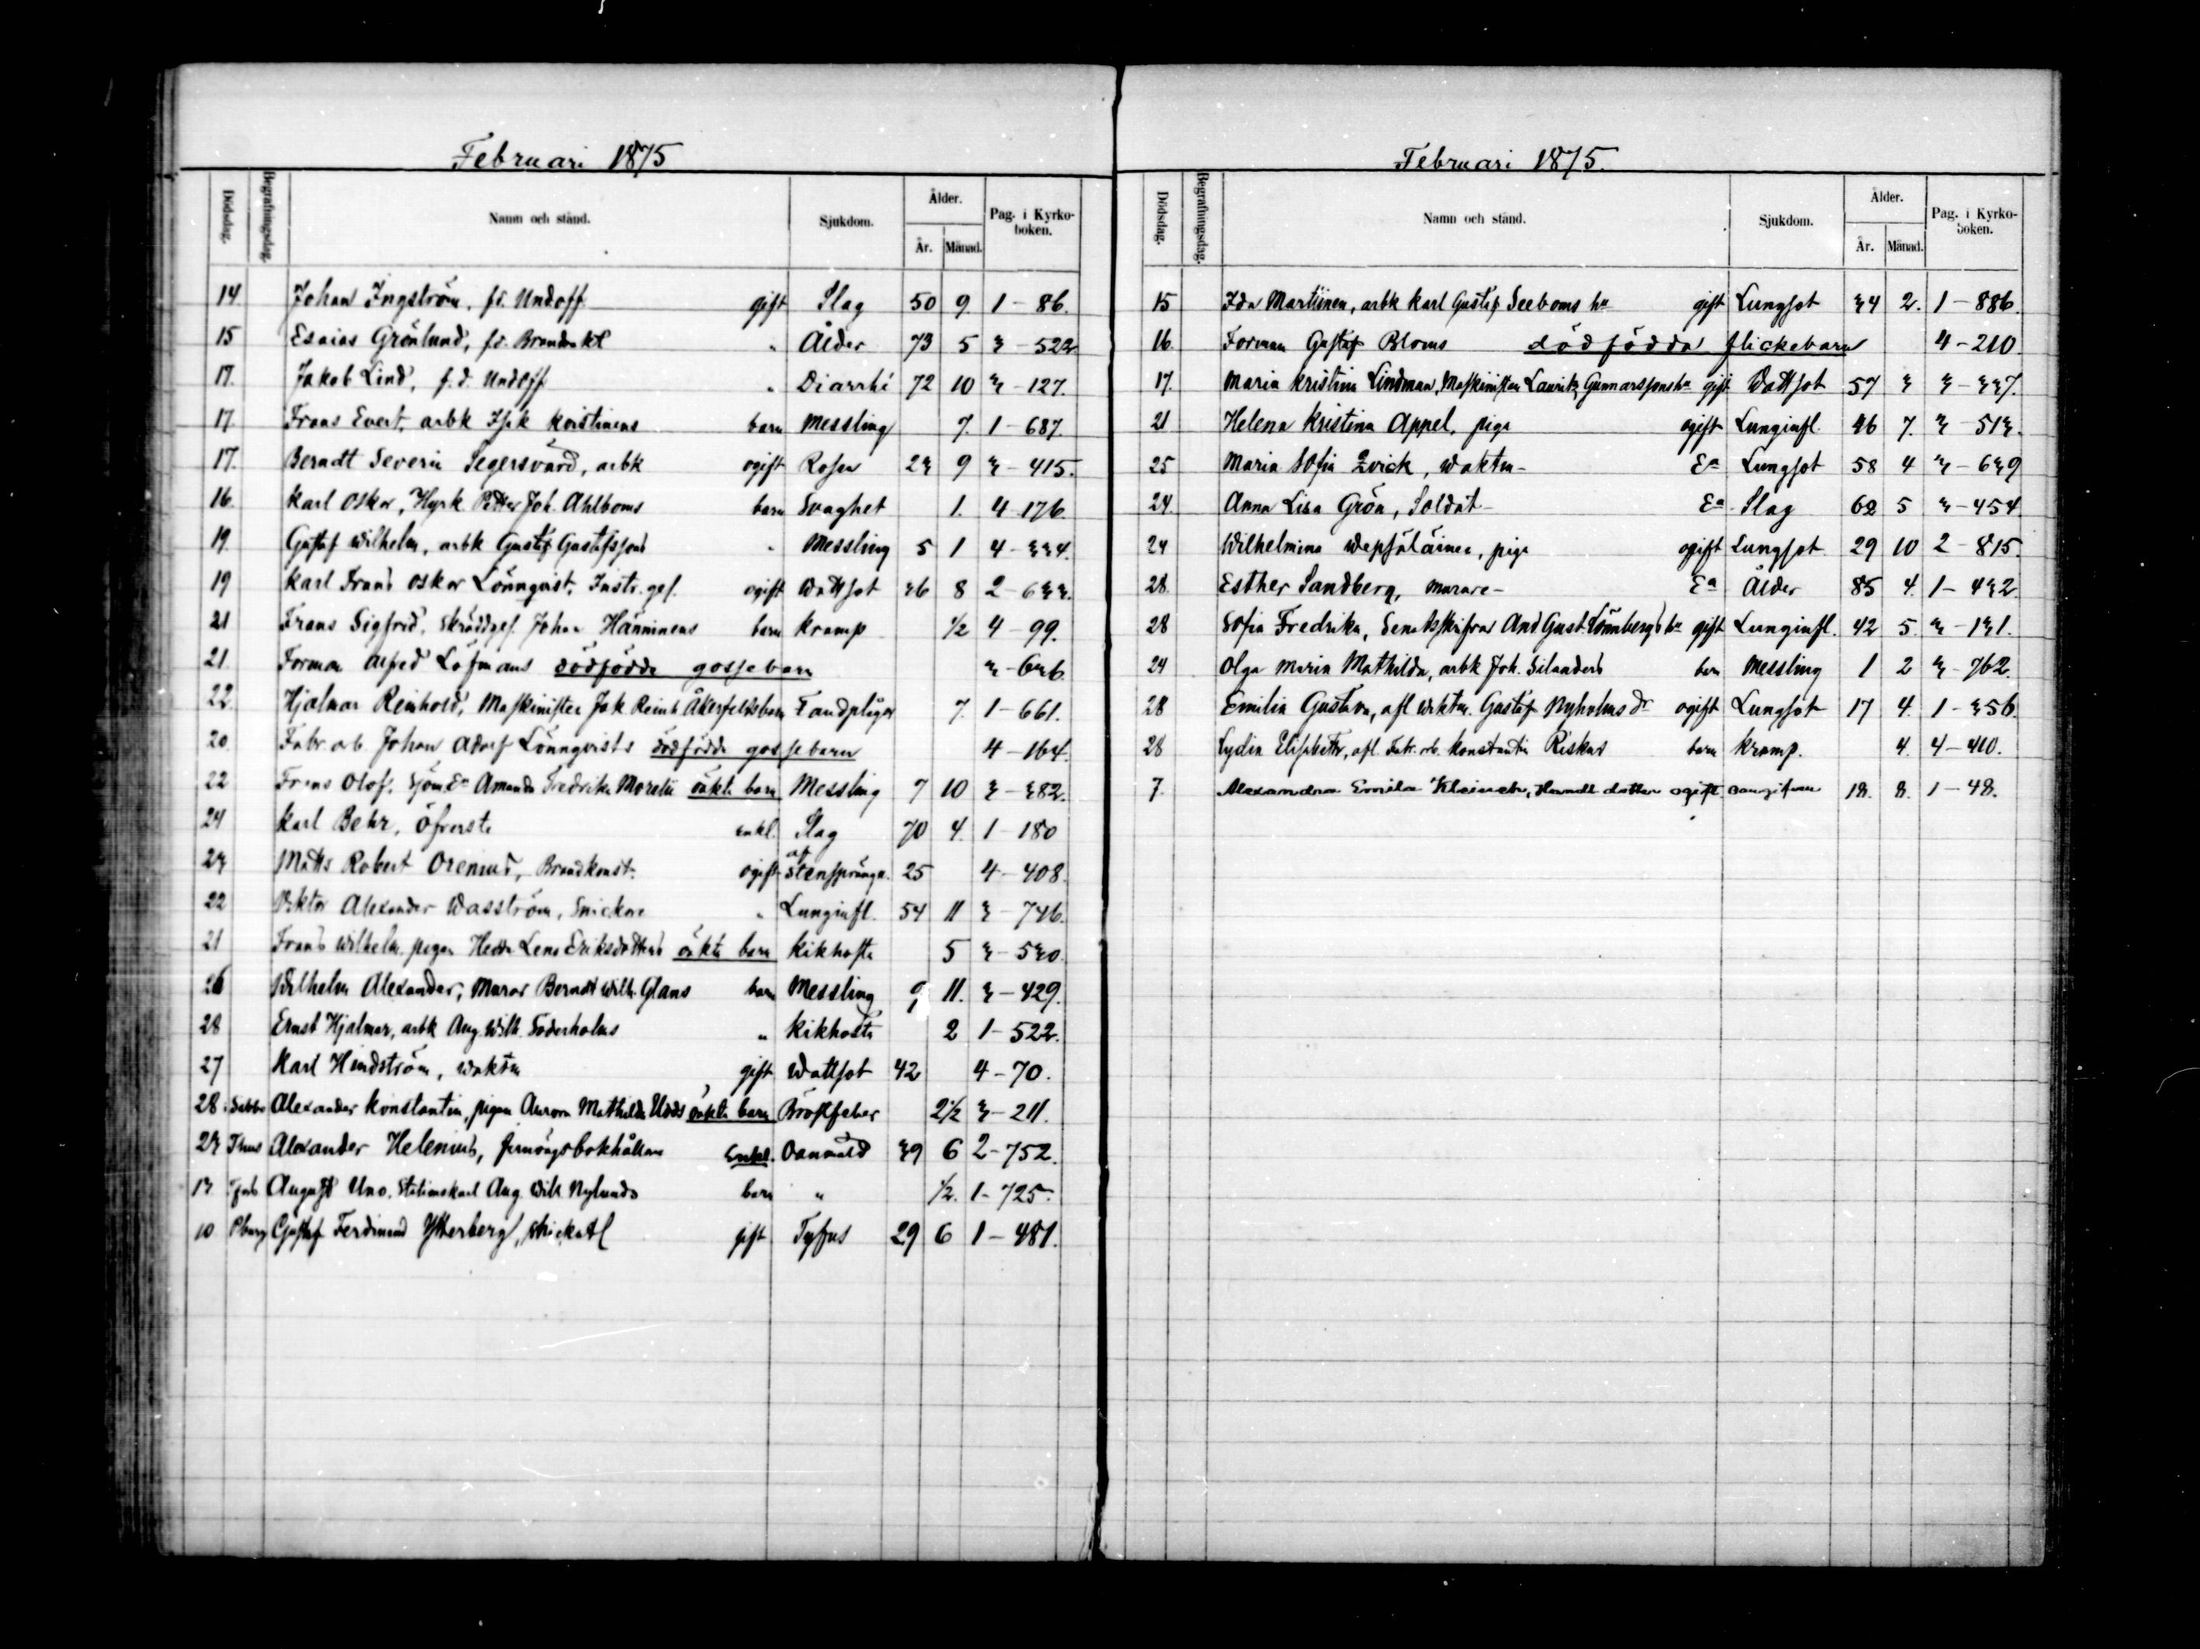 Februari 1875
Dödsdag. Begrafningsdag. Namn och stånd. Sjukdom. Ålder. År. Månad. Pag. i Kyrkoboken.
14. Johan Ingström, fd. Undoff. gift Slag 50 9. 1-86.
15 Esaias Grönlund, fd. Brandvakt " Ålder 73 5 3-522
17. Jakob Lind, f.d. Undoff " Diarrhé 72 10 3-127.
17. Frans Evert, arbk Isak Kristinens barn Messling 7. 1-687.
17. Berndt Severin Segersvärd, arbk ogift Rosen 23 9 3-415.
16. Karl Oskar, Hyrk Petter Joh. Ahlboms barn Svaghet 1. 4-176.
19. Gustaf Wilhelm, arbk Gustaf Gustafssons " Messling 5 1 4-334.
19 Karl Frans Oskar Lönnqvist, Instr. ges. ogift Wattsot 36 8 2-633.
21 Frans Sigfrid, Skräddges. Johan Hänninens barn Kramp 1/2 4-99.
21. Forman Alfred Löfmans dödfödde gossebarn 3-636
22. Hjalmar Reinhold, Maskinisten Jak. Reinh. Åkerfelts barn Tandplågor 7. 1-661.
20. Fabr. arb. Johan Adolf Lönnqvists dödfödde gossebarn 4-164.
22 Frans Olof, Sjöm Ea Amanda Fredrika Morelii oäkta barn Messling 7 10 3-382.
24 Karl Behr, Öfverste enkl. Slag 70 4. 1-180
23 Matts Robert Orenius, Brandkonst. ogift af stensprängn. 25 4-408.
22 Viktor Alexander Wasström, Snickare " Lunginfl. 54 11 3-746.
21 Frans Wilhelm, pigan Hedda Lena Eriksdotters oäkta barn Kikhosta 5 3-530.
26 Wilhelm Alexander, Murar Berndt Wilh. Glans barn Messling 9 11. 3-429.
28 Ernst Hjalmar, arbk Aug. Wilh. Söderholms " Kikhosta 2 1-522.
27 Karl Hindström, waktm gift Wattsot 42 4-70.
28 Sibbo Alexander Konstantin, pigan Aurora Mathilda Udds oäkta barn Bröstfeber 2 1/2 3-211.
23 Alexander Helenius, bokhållare Enkl. Oanmäld 39 6 2-752.
13. August Uno, Stationskarl Aug. Wilh. Nylunds barn " 1/2. 1-725.
10 Gustaf Ferdinand Ytterberg gift Tyfus 29 6 1-481.
Februari 1875.
Dödsdag. Begrafningsdag. Namn och stånd. Sjukdom. Ålder. År. Månad. Pag. i Kyrkoboken.
15 Ida Martiinen, arbk Karl Gustaf Seeboms hu gift Lungsot 34 2. 1-886.
16. Forman Gustaf Bloms dödfödda flickebarn 4-210.
17. Maria Kristina Lindman, Maskinisten Lauritz Gunnarssons hu gift Wattsot 57 3 3-337.
21 Helena Kristina Appel, piga ogift Lunginfl. 46 7. 3-513.
25 Maria Sofia Qvick, waktm- Ea Lungsot 58 4 3-639
24. Anna Lisa Grön, Soldat- Ea Slag 62 5 3-454.
24 Wilhelmina Wepsäläinen, piga ogift Lungsot 29 10 2-815.
28. Esther Sandberg, murare- Ea Ålder 85 4. 1-432.
28 Sofia Fredrika, And Gust. Lönnbergs hu gift Lunginfl. 42 5. 3-131.
24 Olga Maria Mathilda, arbk Joh. Silanders barn Messling 1 2 3-762.
28 Emilia Gustava, afl waktm. Gustaf Nyholms dr ogift Lungsot 17 4. 1-356.
28 Lydia Elisabeth, afl. Fabr. arb. Konstantin Riskas barn Kramp. 4. 4-410.
7. Alexandra Emilia Kleineh, Handl. dotter ogift oangifven 18. 8. 1-48.